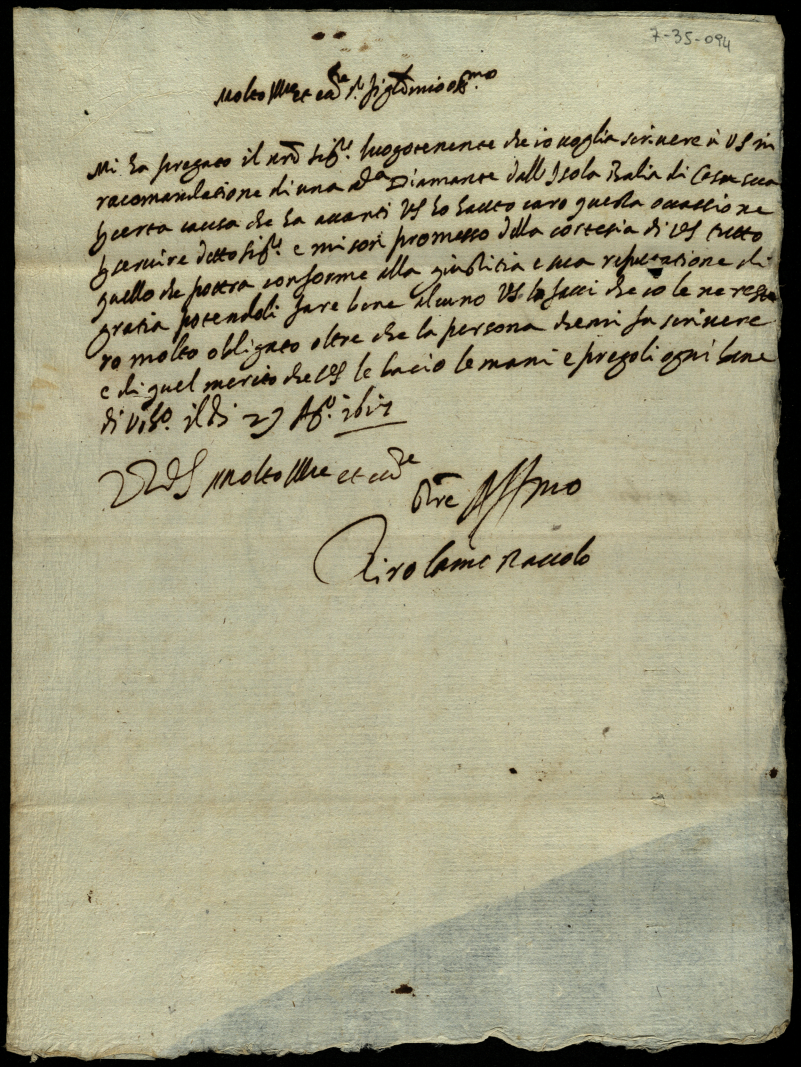 7-35-094
Molto Ill.re et ecc.te s.r sig.r mio oss.mo
Mi ha pregato il nro Sig.r luogotenente che io voglia scrivere à VS in
racomandatione di una Diamante dall Isola Balia di Casa sua
p certa causa che ha avanti VS ho hauto caro questa ocassione
p servire detto Sig.r e mi son promesso della cortesia di VS tutto
quello che potra conforme alla giustitia e sua reputatione di
gratia potendoli fare bene alcuno VS lo facci che io le ne resta
ro molto obligato oltre che la persona che mi fa scrivere
e di quel merito che VS le bacio le mani e pregoli ogni bene
di il di 29 Ag.o 1617
Di VS Molto Ill.re et ecc.te
Aff.mo
Girolamo